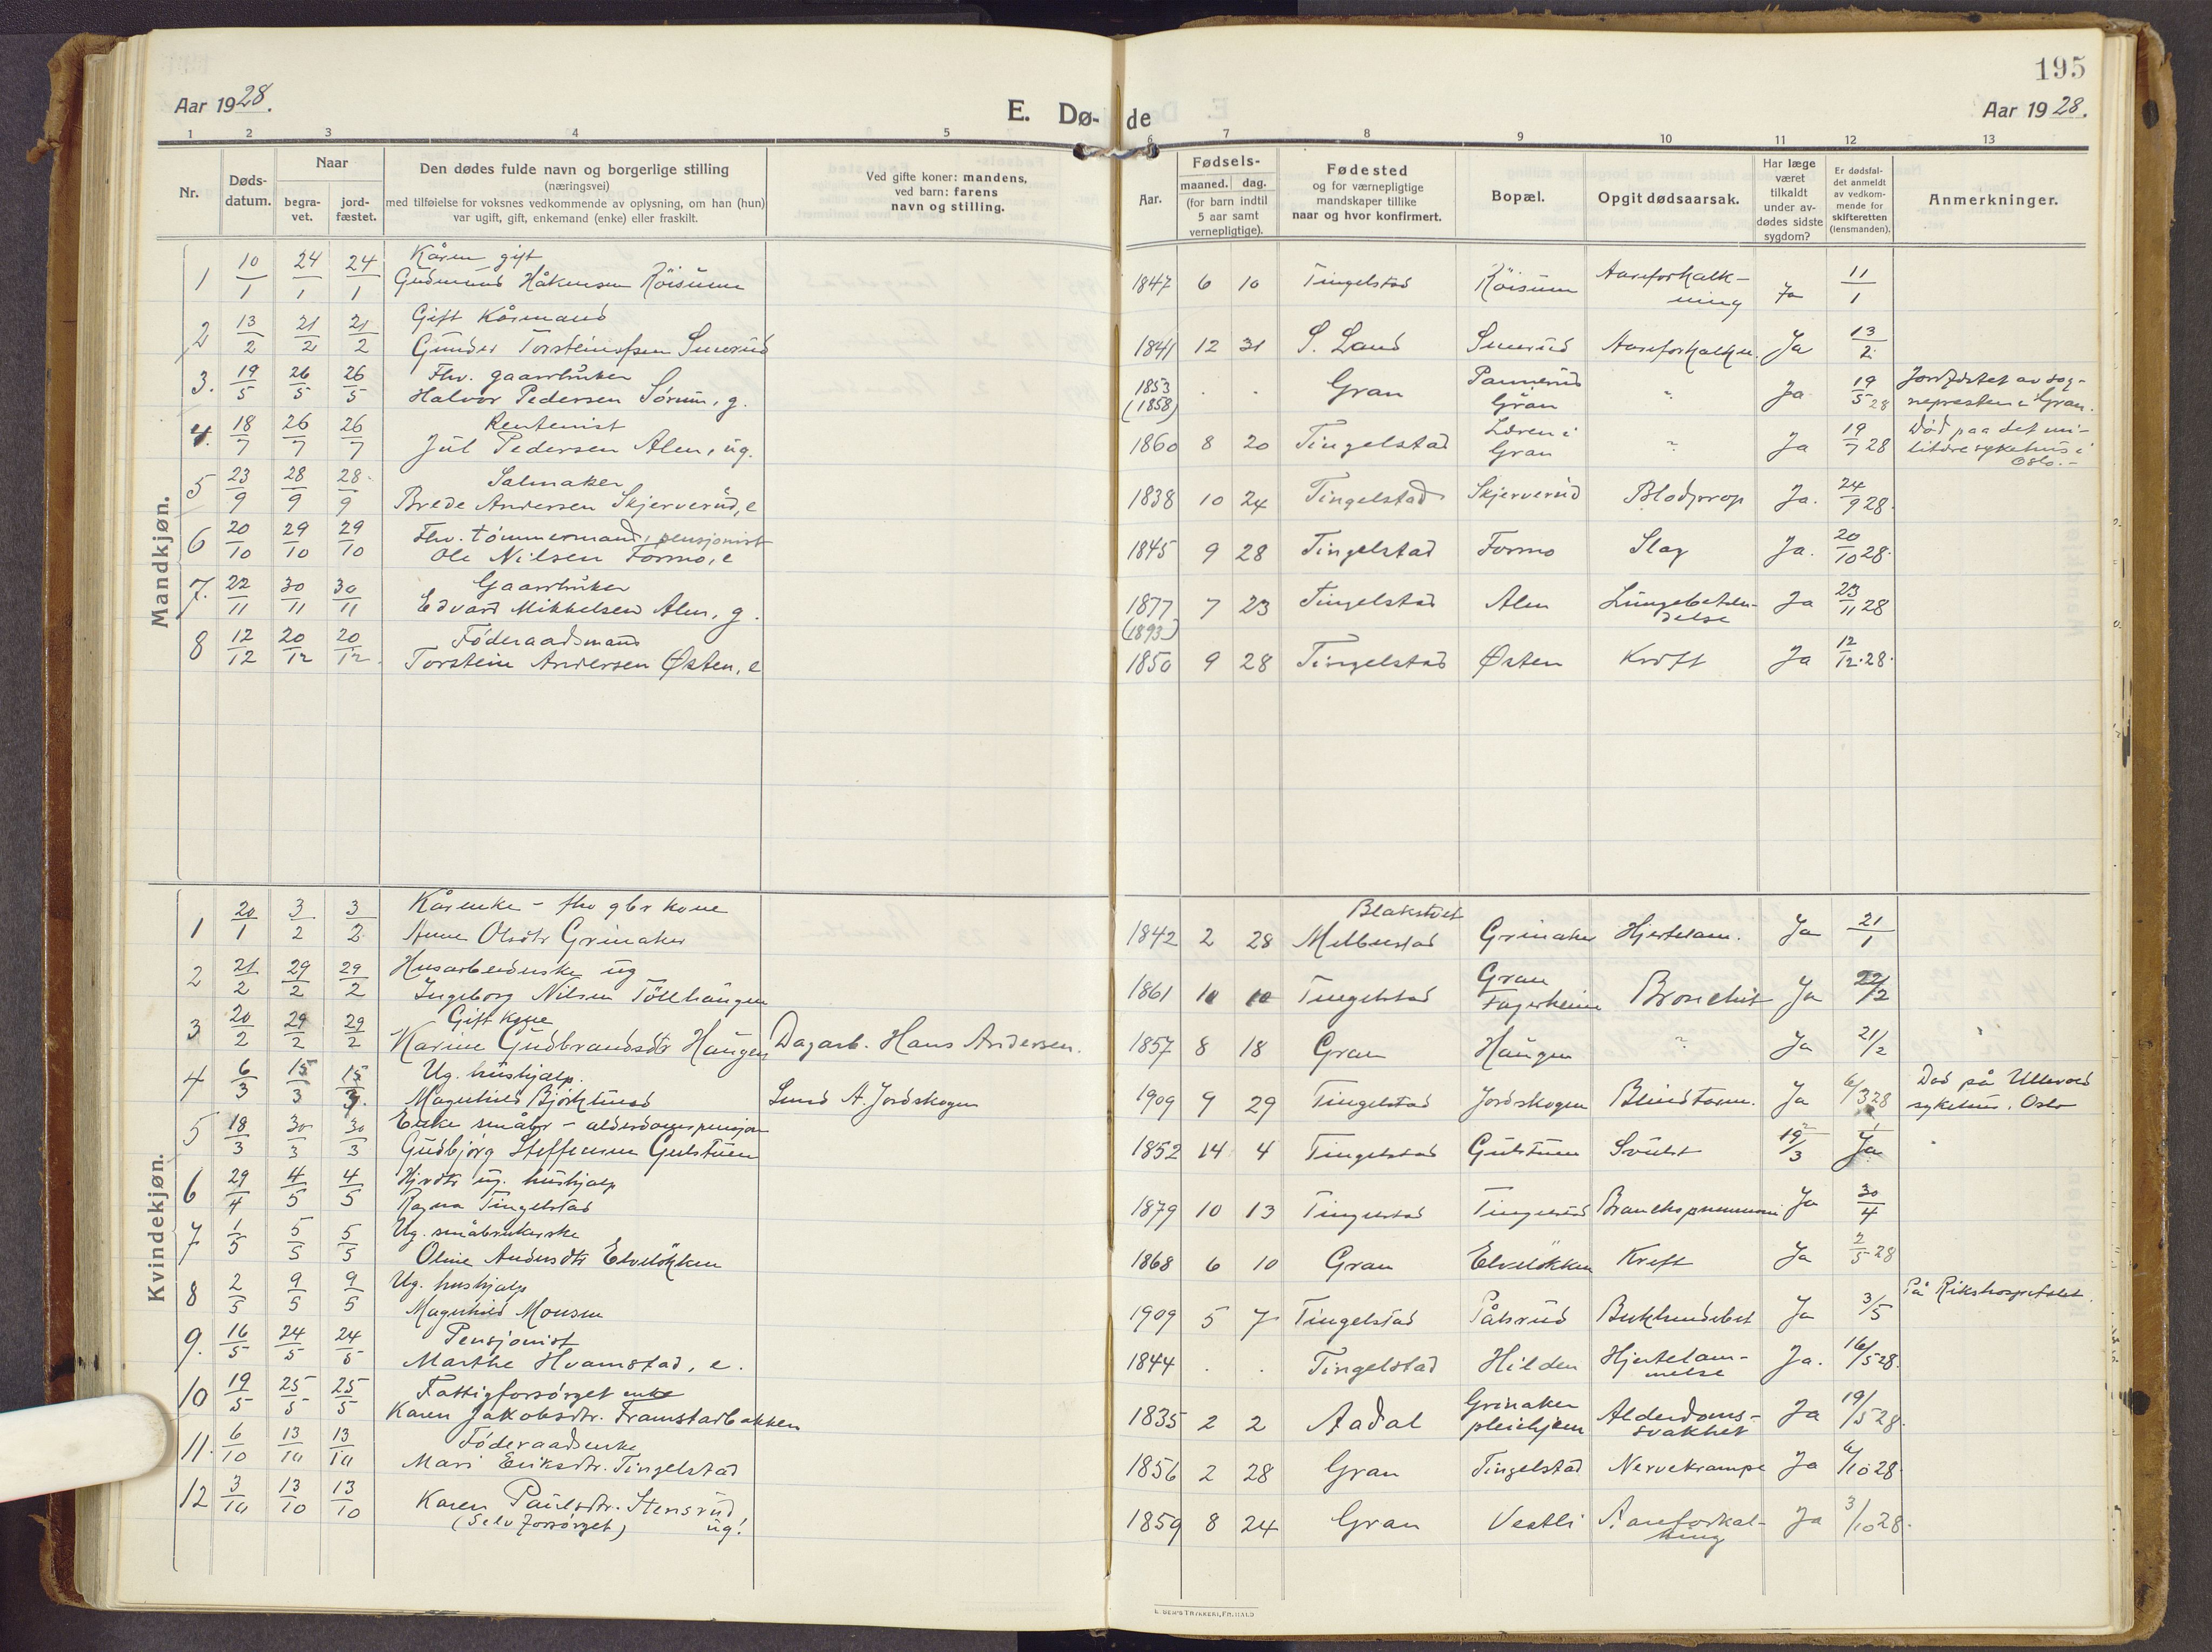 195
Aar 1928.
E. Dø-
de
Aar 1928.
1 2 3 4 5 6 7 8 9 10 11 12 13
Nr.
Døds-
datum.
Naar
begra-
vet.
jord-
fæstet.
Den dødes fulde navn og borgerlige stilling
(næringsvei)
med tilføielse for voksnes vedkommende av oplysning, om han (hun)
var ugift, gift, enkemand (enke) eller fraskilt.
Ved gifte koner: mandens,
ved barn: farens
navn og stilling.
Aar.
Fødsels-
maaned. dag.
(for barn indtil
5 aar samt
vernepligtige).
Fødested
og for værnepligtige
mandskaper tillike
naar og hvor konfirmert.
Bopæl.
Opgit dødsaarsak.
Har læge
været
tilkaldt
under av-
dødes sidste
sygdom?
Er dødsfal-
det anmeldt
av vedkom-
mende for
skifteretten
(lensmanden).
Anmerkninger.
Mandkjøn.
1 10/1 24/1 24/1 Gudmund Håkensen Röisum 1847 6 10 Tingelstad Röisum Aareforkalk-
ning Ja 11/1
Gift Kårmand
2 13/2 21/2 21/2 Gunder Torsteinssen Smerud 1841 12 31 S. Land Smerud Aareforkalkn. Ja 13/2
Fhv. gaardbruker
3. 19/5 26/5 26/5 Halvor Pedersen Sörum, g. 1853
(1858) . . Gran Gran " Ja 19/5 28 Jordfæstet av sog-
nepresten i Gran.
Rentenist
4. 18/7 26/7 26/7 Jul Pedersen Alm, ug. 1860 8 20 Tingelstad Gran " Ja 19/7 28 Död paa det mi-
litære sykehus i
Oslo.-
Salmaker
5 23/9 28/9 28/9 Brede Andersen Skjerverud, e 1838 10 24 Tingelstad Skjerverud Blodprop Ja. 24/9 28.
Fhv. tömmermand, pensjonist
6 20/10 29/10 29/10 Ole Nilsen Formo, e 1845 9 28 Tingelstad Formo Slag Ja. 20/10 28.
Gaardbruker
7. 22/11 30/11 30/11 Edvard Mikkelsen Alm, g. 1877
(1893) 7 23 Tingelstad Alm Lungebeten-
delse Ja 23/11 28
Föderaadsmand
8 12/12 20/12 20/12 Torstein Andersen Østen, e 1850 9 28 Tingelstad Østen Kræft Ja 12/12.28.
Kvindekjøn.
Kårenke - fhv gbr kone
1 20/1 3/2 3/2 Anne Olsdtr Grinaker 1842 2 28 Blakstvet
Melbustad Grinaker Hjertelam. Ja 21/1
Husarbeiderske ug
2 21/2 29/2 29/2 Ingeborg Nilsen Töllhaugen 1861 10 10 Tingelstad Gran
Fagerheim Bronchit Ja 22/2
Gift kone
3 20/2 29/2 29/2 Karine Gudbrandsdtr Haugen Dagarb. Hans Andersen. 1857 8 18 Gran Haugen " Ja 21/2
Ug. hushjælp.
4 6/3 15/3 15/3. Magnhild Björklund A. Jordskogen 1909 9 29 Tingelstad Jordskogen Blindtarm. Ja 6/3 28 Död på Ullevold
sykehus. Oslo
Enke småbr - alderdomspensjon
5 18/3 30/3 30/3 Gudbjörg Steffensen Gulstuen 1852 14 4 Tingelstad Gulstuen Svulst 19/3 Ja
ug. hushjælp
6 29/4 4/5 4/5 Ragna Tingelstad 1879 10 13 Tingelstad Tingelstad Bronchopneumoni Ja 30/4
Ug. småbrukerske
7 1/5 5/5 5/5 Oline Andersdtr Elvelökken 1868 6 10 Gran Elvelökken Kreft Ja 2/5 28
Ug. hushjælp
8 2/5 9/5 9/5 Magnhild Monsen 1909 5 7 Tingelstad Påhsrud Bukhindebet Ja 3/5 På Rikshospitalet.
Pensjonist
9. 16/5 24/5 24/5 Marthe Hvamstad, e. 1844 . . Tingelstad Hilden Hjertelam-
melse Ja. 16/5 28.
Fattigforsörget enke
10 19/5 25/5 25/5 Karen Jakobsdtr. Framstadbakken 1835 2 2 Aadal Grinaker
pleiehjem Alderdoms-
svakhet Ja 19/5 28.
Föderaadsenke
11. 6/10 13/10 13/10 Mari Eriksdtr. Tingelstad 1856 2 28 Gran Tingelstad Nervekrampe Ja 6/10 28.
12 3/10 13/10 13/10 Karen Paulsdtr. Stensrud
(Selvforsörget) ug! 1859 8 24 Gran Vestli Aareforkal-
kning Ja 3/10 28.